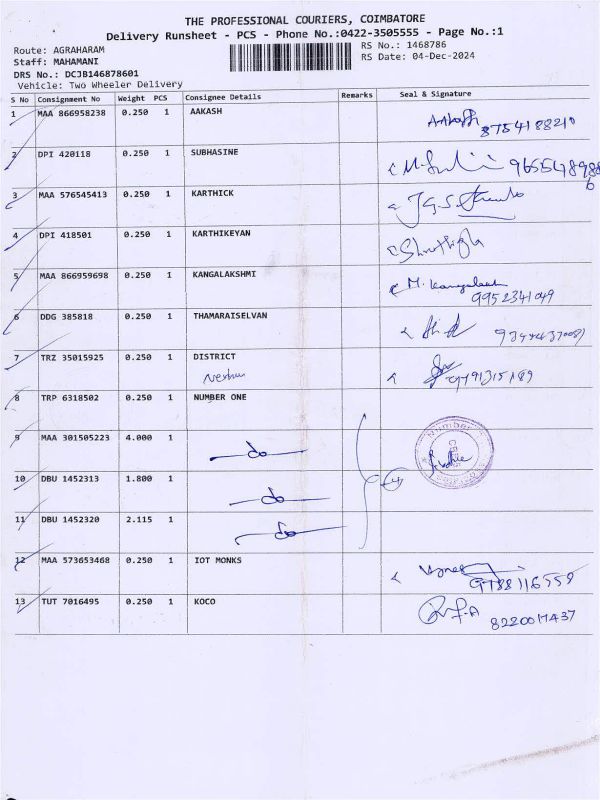 THE PROFESSIONAL COURIERS, COIMBATORE
Delivery Runsheet - PCS - Phone No.:0422-3505555 - Page No.:1
Route: AGRAHARAM RS No.: 1468786
Staff: MAHAMANI RS Date: 04-Dec-2024
DRS No.: DCJB146878601
Vehicle: Two Wheeler Delivery
S No Consignment No Weight PCS Consignee Details Remarks Seal & Signature
1 MAA 866958238 0.250 1 AAKASH Aakash
8754188210
2 DPI 420118 0.250 1 SUBHASINE
3 MAA 576545413 0.250 1 KARTHICK
4 DPI 418501 0.250 1 KARTHIKEYAN
5 MAA 866959698 0.250 1 KANGALAKSHMI M. Kangalakshmi
9952341049
6 DDG 385818 0.250 1 THAMARAISELVAN
7 TRZ 35015925 0.250 1 DISTRICT
8 TRP 6318502 0.250 1 NUMBER ONE
Number
9 MAA 301505223 4.000 1 do
10 DBU 1452313 1.800 1 do
11 DBU 1452320 2.115 1 do
12 MAA 573653468 0.250 1 IOT MONKS
9788116558
13 TUT 7016495 0.250 1 KOCO
8220017437